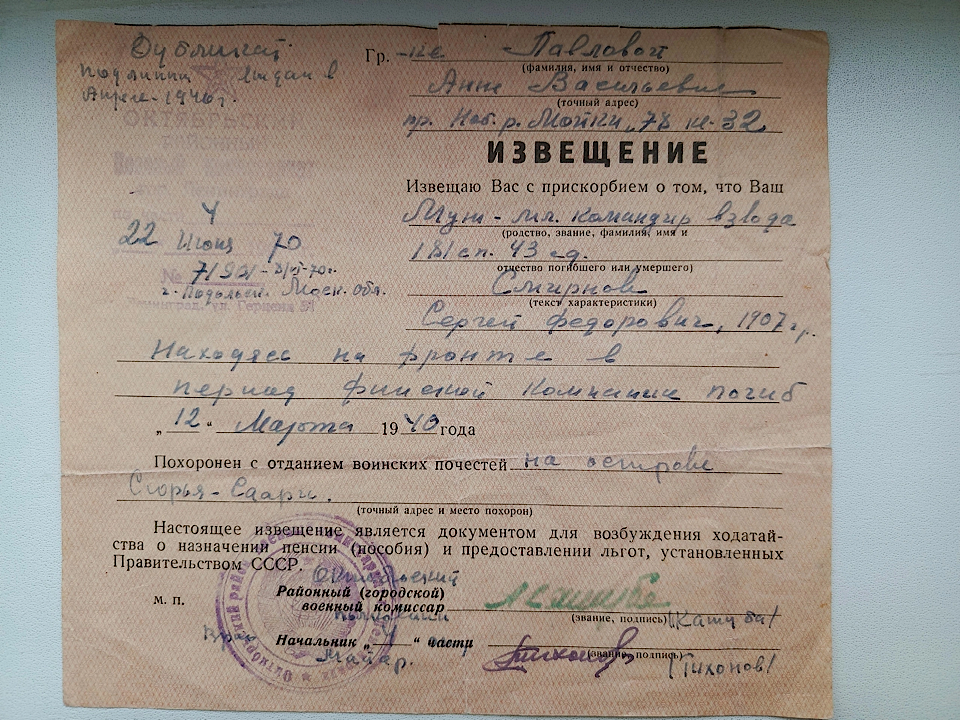 Дубликат
подлинник выдан в
Апреле-1940г.
ОКТЯБРЬСК
РАЙОННЫЙ
22 Июня 70
№ 7/901
г. Подольск. Моск. обл.
Гр. -ке Павловой
(фамилия, имя и отчество)
Анне Васильевне
(точный адрес)
пр. Наб. р. Мойки, 78 кв. 32
ИЗВЕЩЕНИЕ
Извещаю Вас с прискорбием о том, что Ваш
Муж - мл. командир взвода
(родство, звание, фамилия, имя и
181 сп. 43 сд.
отчество погибшего или умершего)
Смирнов
(текст характеристики)
Сергей Федорович, 1907 гр.
Находясь на фронте в
период финской Компании погиб
„ 12 “ Марта 1940 года
Похоронен с отданием воинских почестей на острове
Сюрья-Саари.
(точный адрес и место похорон)
Настоящее извещение является документом для возбуждения ходатай-
ства о назначении пенсии (пособия) и предоставлении льгот, установленных
Правительством СССР.
Октябрьский
Районный (городской)
м. п. военный комиссар
(звание, подпись) /Кашуба/
полковник
Начальник „ 4 “ части
(звание, подпись) /Тихонов/
Майор.